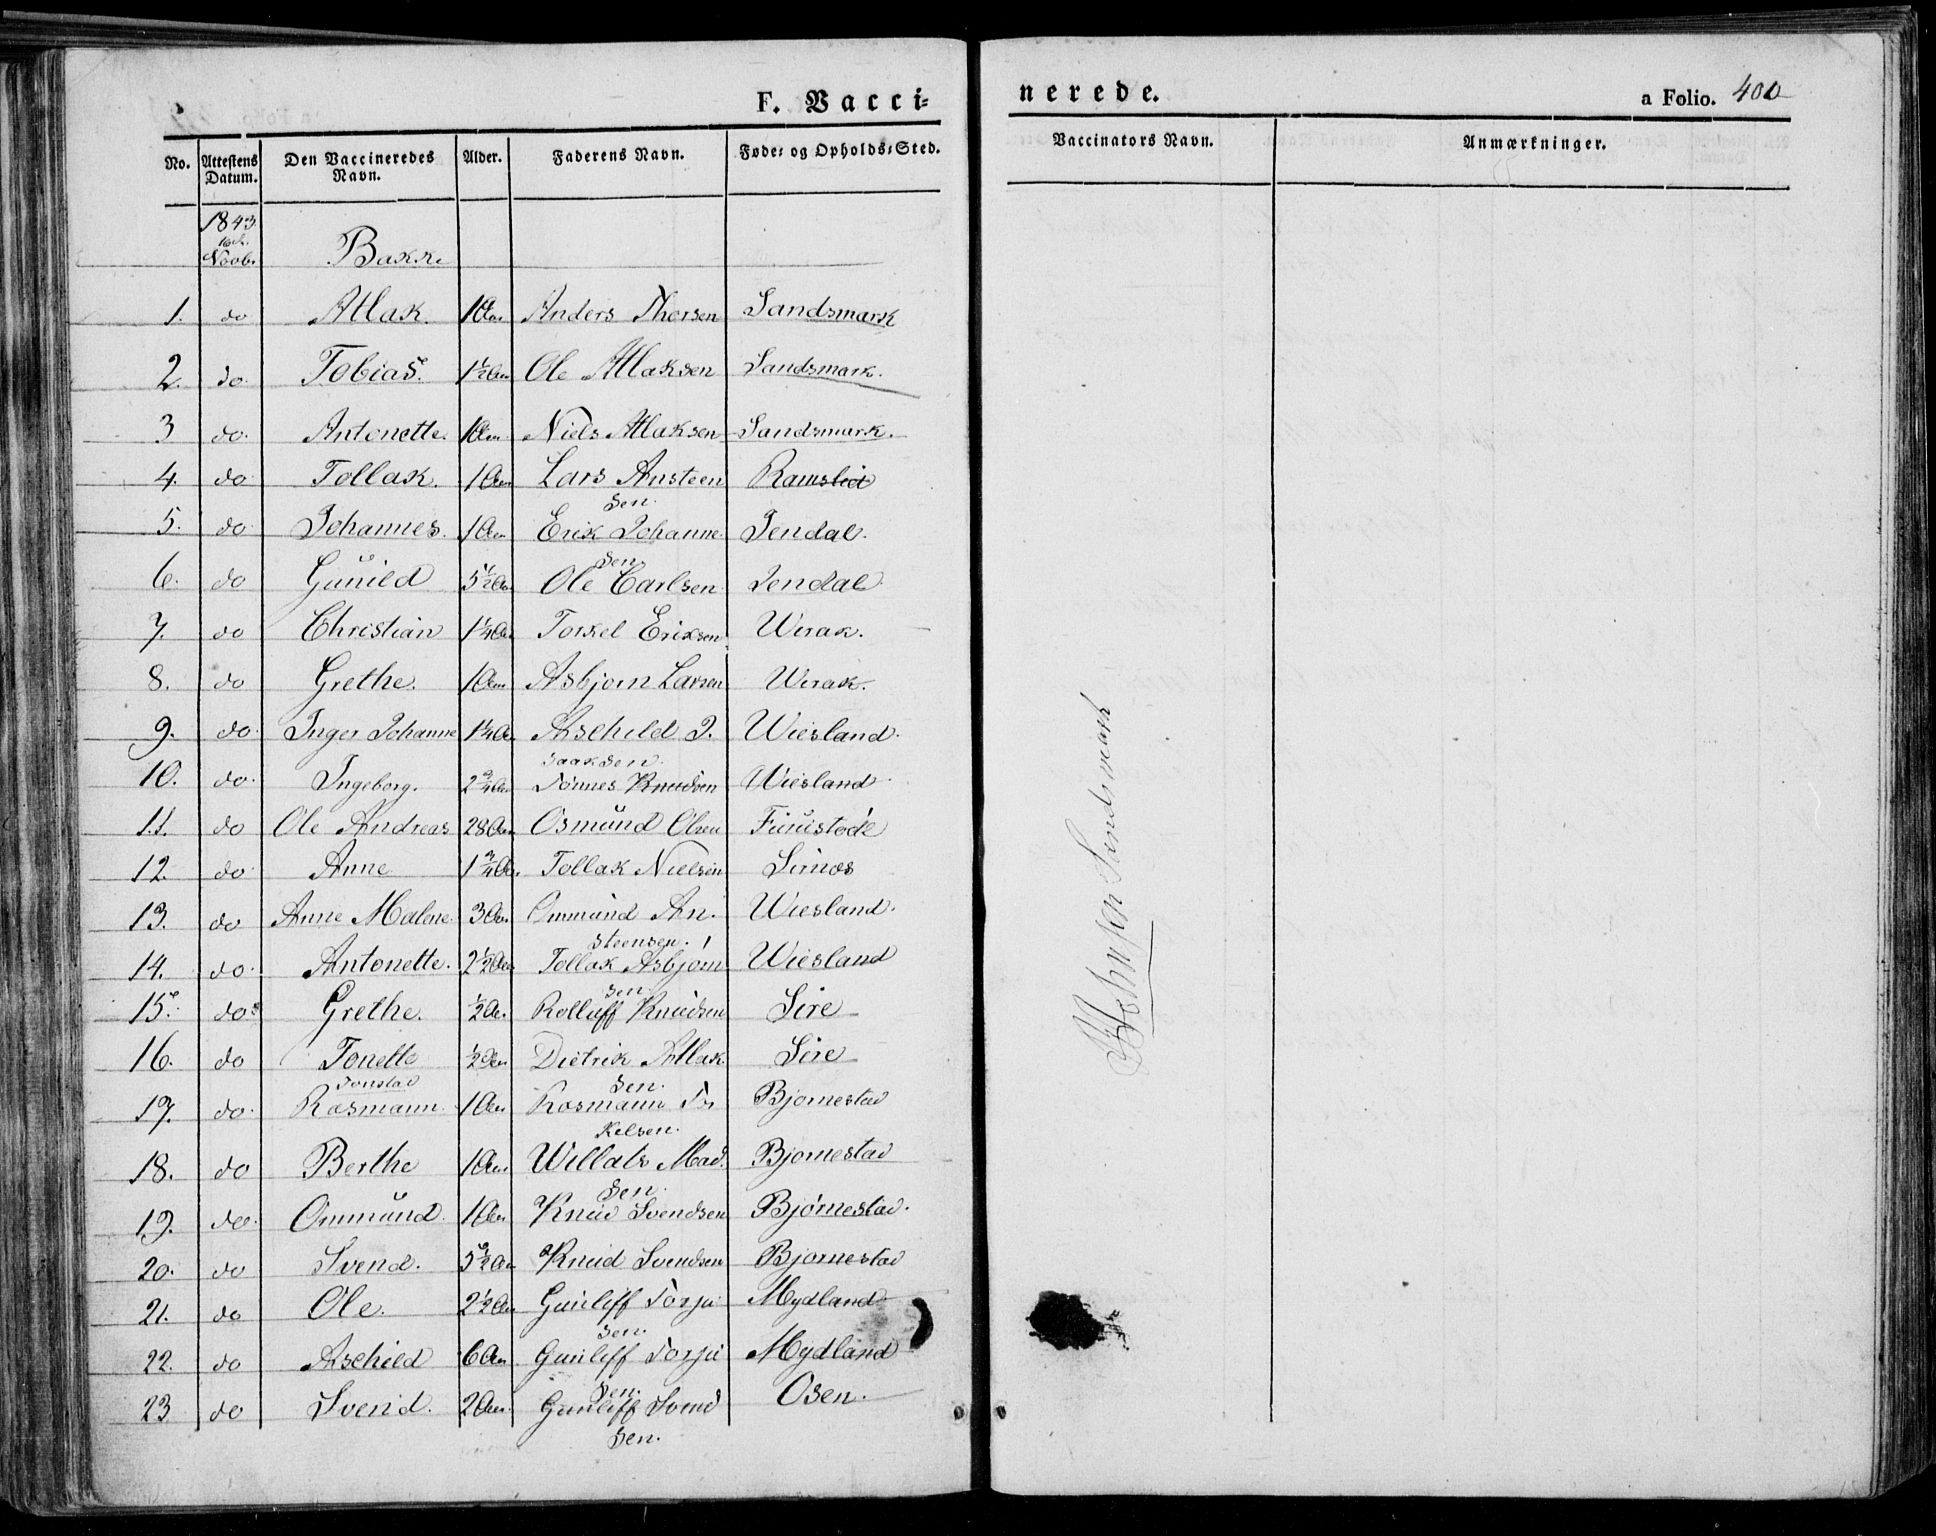 F. Vacci-
nerede.
a Folio. 400
No. Attestens Datum. Den Vaccineredes Navn. Alder. Faderens Navn. Føde- og Opholds-Sted. Vaccinators Navn. Anmærkninger.
1843
Novb. Bakke
1. do Atlak. 1 Aar Anders Thorsen Sandsmark
2. do. Tobias. 1½ Aar Ole Atlaksen Sandsmark.
3 do. Antonette. 1 Aar Niels Atlaksen Sandsmark.
4. do Tollak. 1 Aar Lars Ansteen
sen. Ramslid
5. do Johannes. 1 Aar Erik Johanne
sen Jendal.
6. do Gunild 5½ Aar Ole Carlsen Jendal
7. do Christian 1¼ Aar Torkel Eriksen Werak.
8. do Grethe. 1 Aar Asbjørn Larsen Werak.
9. do Inger Johanne 1¼ Aar Aschild I.
saaksen. Wiesland.
10. do. Ingeborg. 2¾ Aar Tønnes Knudsen Wiesland
11. do Ole Andreas 28 Aar Osmund Olsen Fuustøde
12. do Anne 1¾ Aar Tollak Nielsen Sirnæs
13. do Anne Malene. 3 Aar Ommund An.
steensen. Wiesland.
14. do. Antonette. 2½ Aar Tollak Asbjørn
sen Wiesland
15. do Grethe. ½ Aar Rolluff Knudsen Sire
16. do Tonette ½ Aar Dietrik Atlak
sen. Sire
17. do. Tonstad
Rasmann. 1 Aar Rosmann To
kelsen. Bjørnestad
18. do Berthe 1 Aar Willats Mad.
sen. Bjørnestad
19. do. Ommund. 1 Aar Knud Svendsen Bjørnestad.
20. do Svend. 5½ Aar Knud Svendsen Bjørnestad
21. do Ole. 2½ Aar Gunleff Torju
sen. Mydland
22. do Aschild 6 Aar Gunleff Torju
sen. Mydland
23 do Svend. 2 Aar. Gunleff Svend
sen. Osen.
Sandsmark